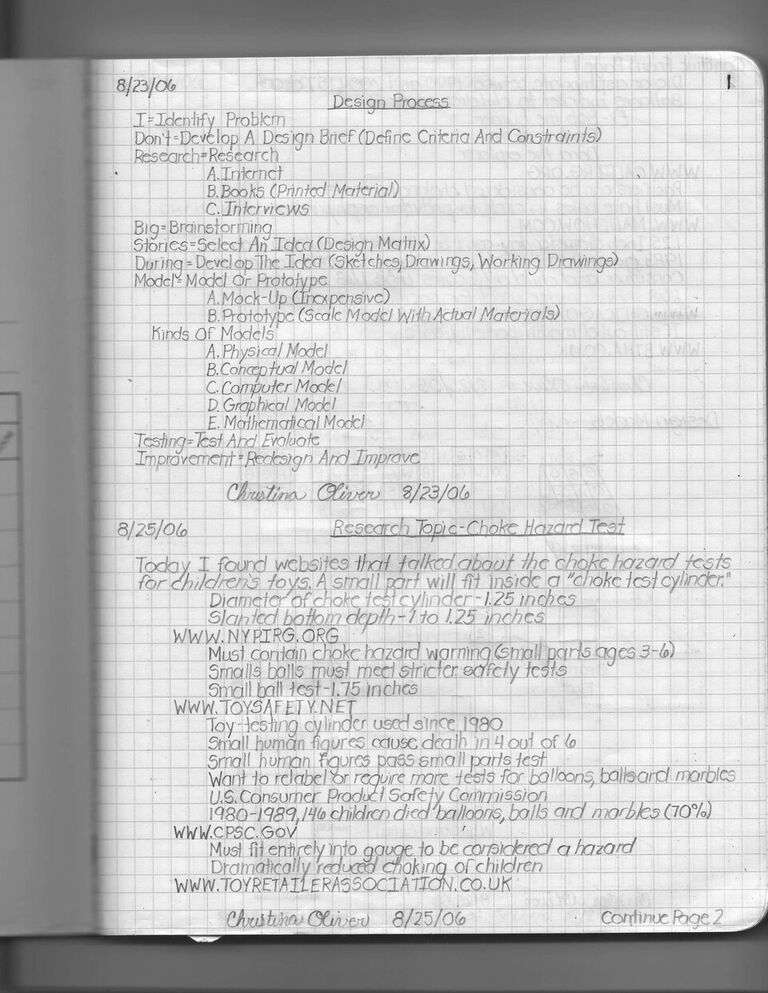 1
8/23/06
Design Process
I=Identify Problem
Don't=Develop A Design Brief (Define Criteria And Constraints)
Research=Research
A. Internet
B. Books (Printed Material)
C. Interviews
Big=Brainstorming
Stories=Select An Idea (Design Matrix)
During=Develop The Idea (Sketches, Drawings, Working Drawings)
Model=Model Or Prototype
A. Mock-Up (Inexpensive)
B. Prototype (Scale Model With Actual Materials)
Kinds Of Models
A. Physical Model
B. Conceptual Model
C. Computer Model
D. Graphical Model
E. Mathematical Model
Testing=Test And Evaluate
Improvement=Redesign And Improve
Christina Oliver 8/23/06
8/25/06 Research Topic-Choke Hazard Test
Today I found websites that talked about the choke hazard tests
for childrens toys. A small part will fit inside a "choke test cylinder."
Diameter of choke test cylinder-1.25 inches
Slanted bottom depth-1 to 1.25 inches
WWW.NYPIRG.ORG
Must contain choke hazard warning (small parts ages 3-6)
Smalls balls must meet stricter safety tests
Small ball test-1.75 inches
WWW.TOYSAFETY.NET
Toy-testing cylinder used since 1980
Small human figures cause death in 4 out of 6
Small human figures pass small parts test
Want to relabel or require more tests for balloons, balls and marbles
U.S. Consumer Product Safety Commission
1980-1989, 146 children died balloons, balls and marbles (70%)
WWW.CPSC.GOV
Must fit entirely into gauge to be considered a hazard
Dramatically reduced choking of children
WWW.TOYRETAILERASSOCIATION.CO.UK
Christina Oliver 8/25/06 Continue Page 2